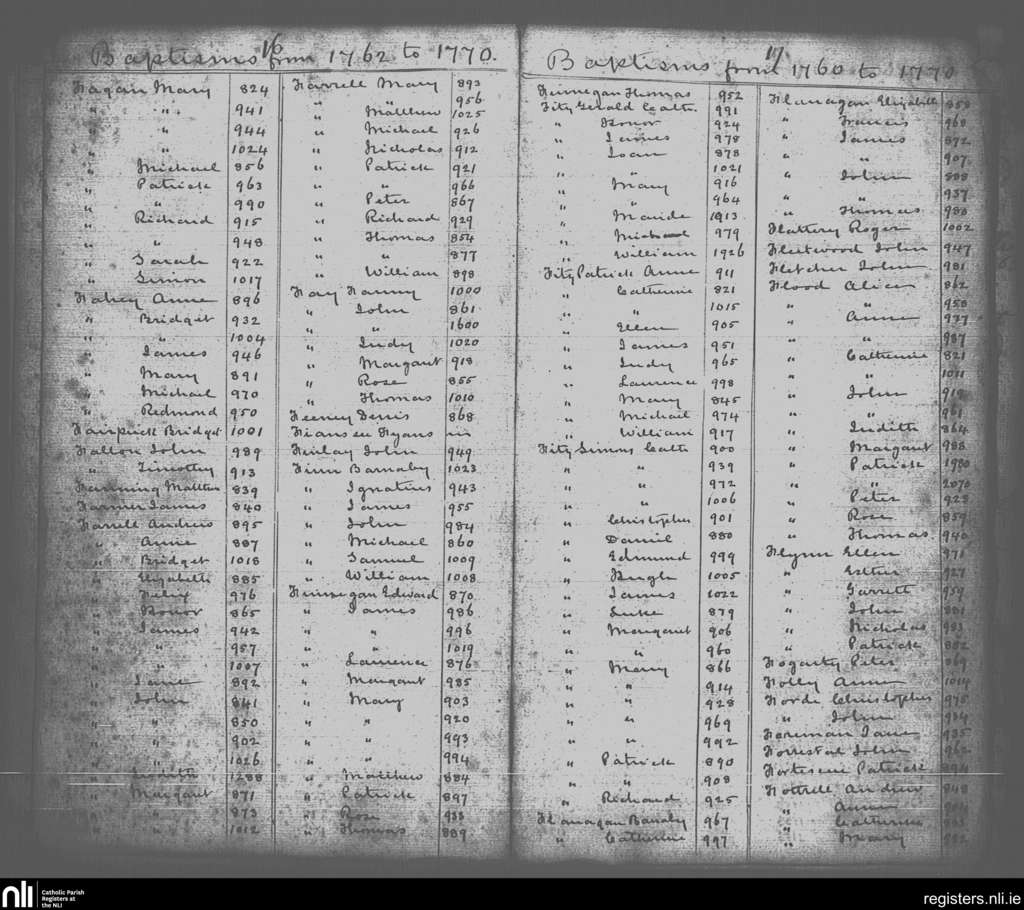 16
Baptisms from 1762 to 1770.
Fagan Mary 824
" " 941
" " 944
" " 1024
" Michael 856
" Patrick 963
" " 990
" Richard 915
" " 948
" Sarah 922
" Simon 1017
Fahey Anne 896
" Bridget 932
" " 1004
" James 946
" Mary 891
" Michael 970
" Redmond 950
Bridget 1001
Fallon John 989
" Timothy 913
Fanning Matthew 839
Farmer James 840
Farrell Andrew 895
" Anne 887
" Bridget 1018
" Elizabeth 885
" Felix 976
" Honor 865
" James 942
" " 957
" " 1007
" Jane 892
" John 841
" " 850
" " 902
" " 1026
" Judith 1288
" Margaret 871
" " 873
" " 1012
Farrell Mary 893
" " 956
" Matthew 1025
" Michael 926
" Nicholas 912
" Patrick 921
" " 966
" Peter 867
" Richard 929
" Thomas 854
" " 877
" William 898
Fay Fanny 1000
" John 861
" " 1600
" Judy 1020
" Margaret 918
" Rose 855
" Thomas 1010
Feeney Denis 868
Finlay John 949
Finn Barnaby 1023
" Ignatius 943
" James 955
" John 984
" Michael 860
" Samuel 1009
" William 1008
Finnegan Edward 870
" James 986
" " 996
" " 1019
" Laurence 876
" Margaret 985
" Mary 903
" " 920
" " 993
" " 994
" Matthew 884
" Patrick 897
" Rose 933
" Thomas 889
17
Baptisms from 1760 to 1770
Finnegan Thomas 952
FitzGerald Cath. 991
" Honor 924
" James 978
" Joan 878
" " 1021
" Mary 916
" " 964
" Maude 1913
" Michael 979
" William 1926
FitzPatrick Anne 911
" Catherine 821
" " 1015
" Ellen 905
" James 951
" Judy 965
" Laurence 998
" Mary 845
" Michael 974
" William 917
FitzSimons Cath 900
" " 939
" " 972
" " 1006
" Christopher 901
" Daniel 880
" Edmund 999
" Hugh 1005
" James 1022
" Luke 879
" Margaret 906
" " 960
" Mary 866
" " 914
" " 928
" " 969
" " 992
" Patrick 890
" " 908
" Richard 925
Flanagan Barnaby 967
" Catherine 997
Flanagan Elizabeth 858
" Francis 968
" James 872
" " 907
" John 888
" " 937
" Thomas 980
Flattery Roger 1002
Fleetwood John 947
Fletcher John 981
Flood Alice 862
" " 958
" Anne 977
" " 987
" Catherine 821
" " 1011
" John 919
" " 961
" Judith 864
" Margaret 988
" Patrick 1980
" " 2070
" Peter 923
" Rose 859
" Thomas 940
Flynn Ellen 971
" Esther 927
" Garrett 959
" John 881
" Nicholas 983
" Patrick 852
Fogarty Peter 869
Folly Anne 1014
Forde Christopher 975
" John 904
Foreman Jane 935
Forrestal John 962
Fortescue Patrick 894
Fottrell Andrew 848
" Anne
" Catherine
" Mary
nli
Catholic Parish
Registers at
the NLI
registers.nli.ie